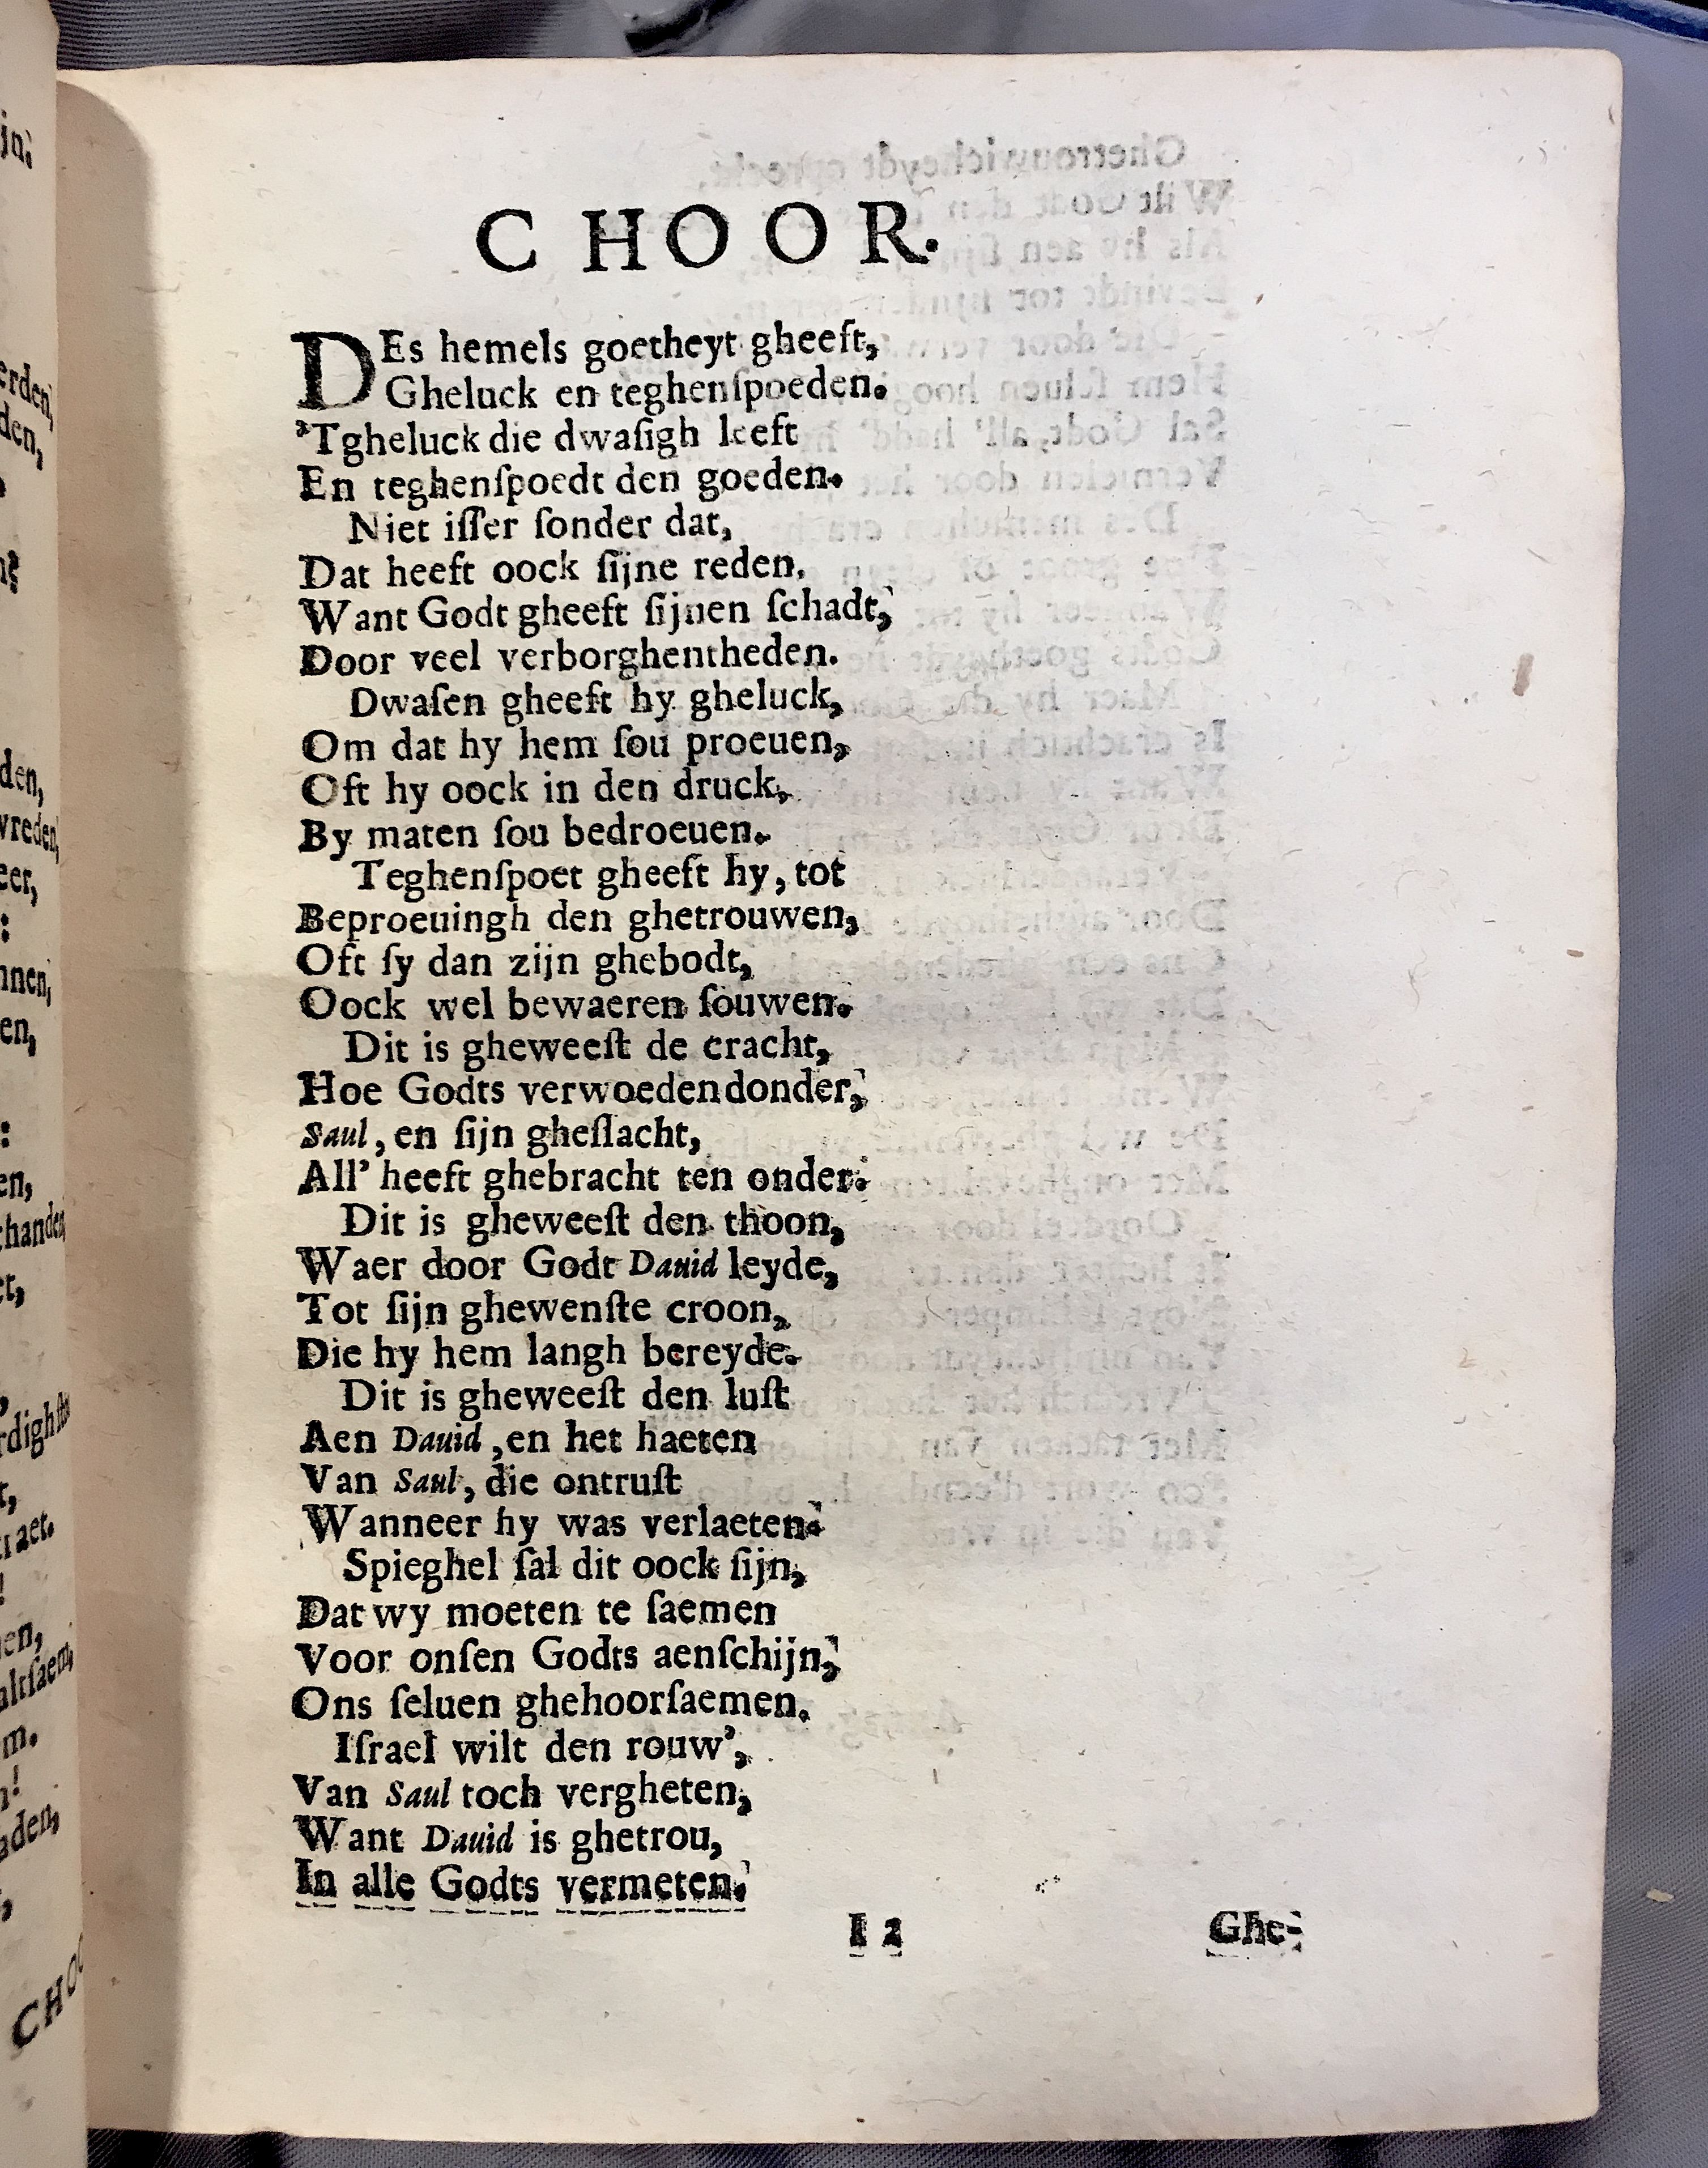 CHOOR.
DEs hemels goetheyt gheeft,
Gheluck en teghenſpoeden.
'Tgheluck die dwaſigh leeft
En teghenſpoedt den goeden.
Niet iſſer ſonder dat,
Dat heeft oock ſijne reden.
Want Godt gheeft ſijnen ſchadt,
Door veel verborghentheden.
Dwaſen gheeft hy gheluck,
Om dat hy hem ſou proeuen,
Oft hy oock in den druck,
By maten ſou bedroeuen.
Teghenſpoet gheeft hy, tot
Beproeuingh den ghetrouwen,
Oft ſy dan zijn ghebodt,
Oock wel bewaeren ſouwen.
Dit is gheweeſt de cracht,
Hoe Godts verwoedendonder,
Saul, en ſijn gheſlacht,
All' heeft ghebracht ten onder.
Dit is gheweeſt den thoon,
Waer door Godt Dauid leyde,
Tot ſijn ghewenſte croon,
Die hy hem langh bereyde.
Dit is gheweeſt den luſt
Aen Dauid, en het haeten
Van Saul, die ontruſt
Wanneer hy was verlaeten.
Spieghel ſal dit oock ſijn,
Dat wy moeten te ſaemen
Voor onſen Godts aenſchijn,
Ons ſeluen ghehoorſaemen.
Iſrael wilt den rouw',
Van Saul toch vergheten,
Want Dauid is ghetrou,
In alle Godts vermeten.
I 2 Ghe-